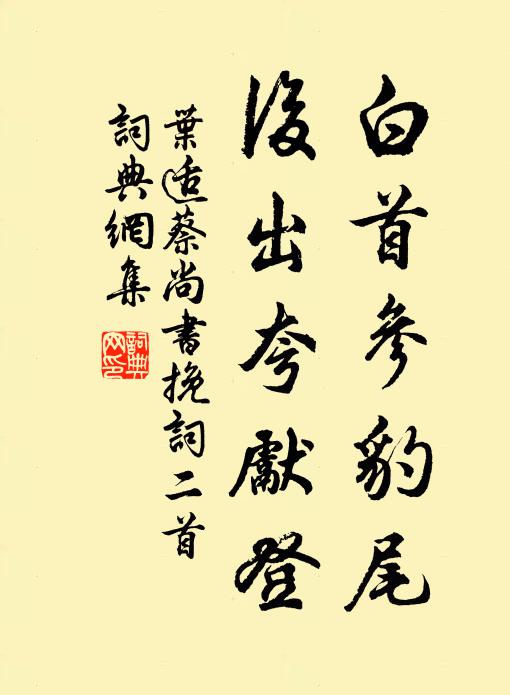 白首參豹尾
後出夸獻登
葉适蔡尚書挽詞二首
詞典網集
詞典
网印